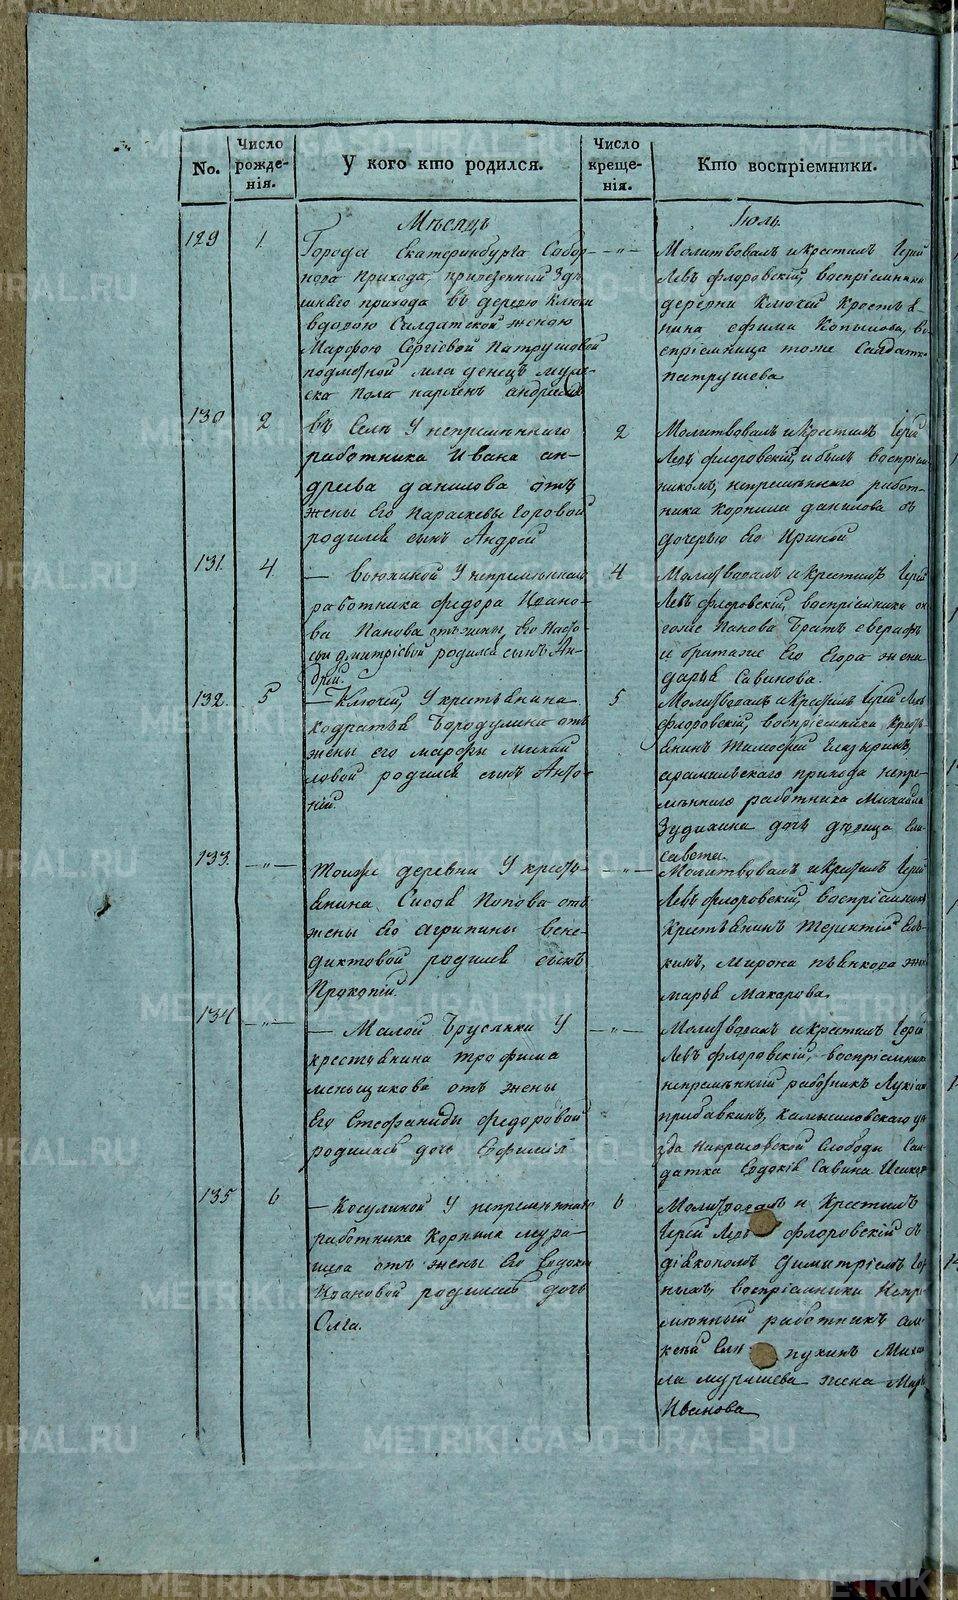 No.
Число рожде-нія.
У кого кто родился.
Число креще-нія.
Кто воспріемники.
Мѣсяцъ
Іюль.
129
1.
Города Екатеринбурга Собор-
наго прихода, привезенный здѣ-
шняго прихода въ деревню Ключи
вдовою Салдатской женою
Марфою Сергіевой Патрушовой
младенецъ муже-
ска пола нареченъ Андреемъ
— „ —
Молитвовалъ и крестилъ Іерей
Левъ Флоровскій, воспріемники
деревни Ключей Крестья-
нина Ефима Копылова, во-
спріемница тоже Салдатка
Патрушева
130
2
Въ Селѣ у непремѣннаго
работника Ивана Ан-
древа Данилова отъ
жены его Параскевы
родился сынъ Андрей
2
Молитвовалъ и крестилъ Іерей
Левъ Флоровскій, и былъ воспріем-
никомъ, непремѣннаго работ-
ника Корнила Данилова съ
дочерью его Ириной
131.
4.
— Вьюхиной у непремѣннаго
работника Федора Ивано-
ва Панова отъ жены его Насто-
сьи Дмитріевой родился сынъ Ан-
дрей.
4
Молитвовалъ и крестилъ Іерей
Левъ Флоровскій, воспріемники он
гоже Панова братъ
и его Егора жена
Дарья Савинова.
132.
5
— Ключей, у крестьянина
Кодратья Бородулина отъ
жены его Марфы Михай-
ловой родился сынъ Анто-
ній.
5
Молитвовалъ и крестилъ Іерей Левъ
Флоровскій, воспріемники Кресть-
янинъ Тимофей
арамильскаго прихода непре-
мѣннаго работника Михайла
Зудихина дочь дѣвица Ели-
савета.
133.
— „ —
Тойже деревни у кресть-
янина Сисоя Попова отъ
жены его Агрипины Вене-
диктовой родился сынъ
Прокопій.
— „ —
Молитвовалъ и крестилъ Іерей
Левъ Флоровскій, воспріемники
Крестьянинъ Терентій
кинъ, Мирона Пьянкова жена
Марья Макарова.
134
— „ —
— Малой Брусянки у
крестьянина Трофима
Меньщикова отъ жены
его Стефаниды Федоровой
родилась дочь Евфимія
— „ —
Молитвовалъ и крестилъ Іерей
Левъ Флоровскій, воспріемники
непремѣнный работникъ Лукіан
Прибавкинъ, Камышловскаго уѣ-
зда Слободы Сал-
датка Евдокія Савина
135
6
— Косулиной у непремѣннаго
работника Корнила Мура-
шева отъ жены его Евдокіи
Ивановой родилась дочь
Олга.
6
Молитвовалъ и Крестилъ
Іерей Левъ Флоровскій съ
діякономъ Димитріемъ
воспріемники Непре-
мѣнный работникъ Але-
ксѣй пухинъ Михаи-
ла Мурашева жена
Иванова
METRIKI.GASO-URAL.RU